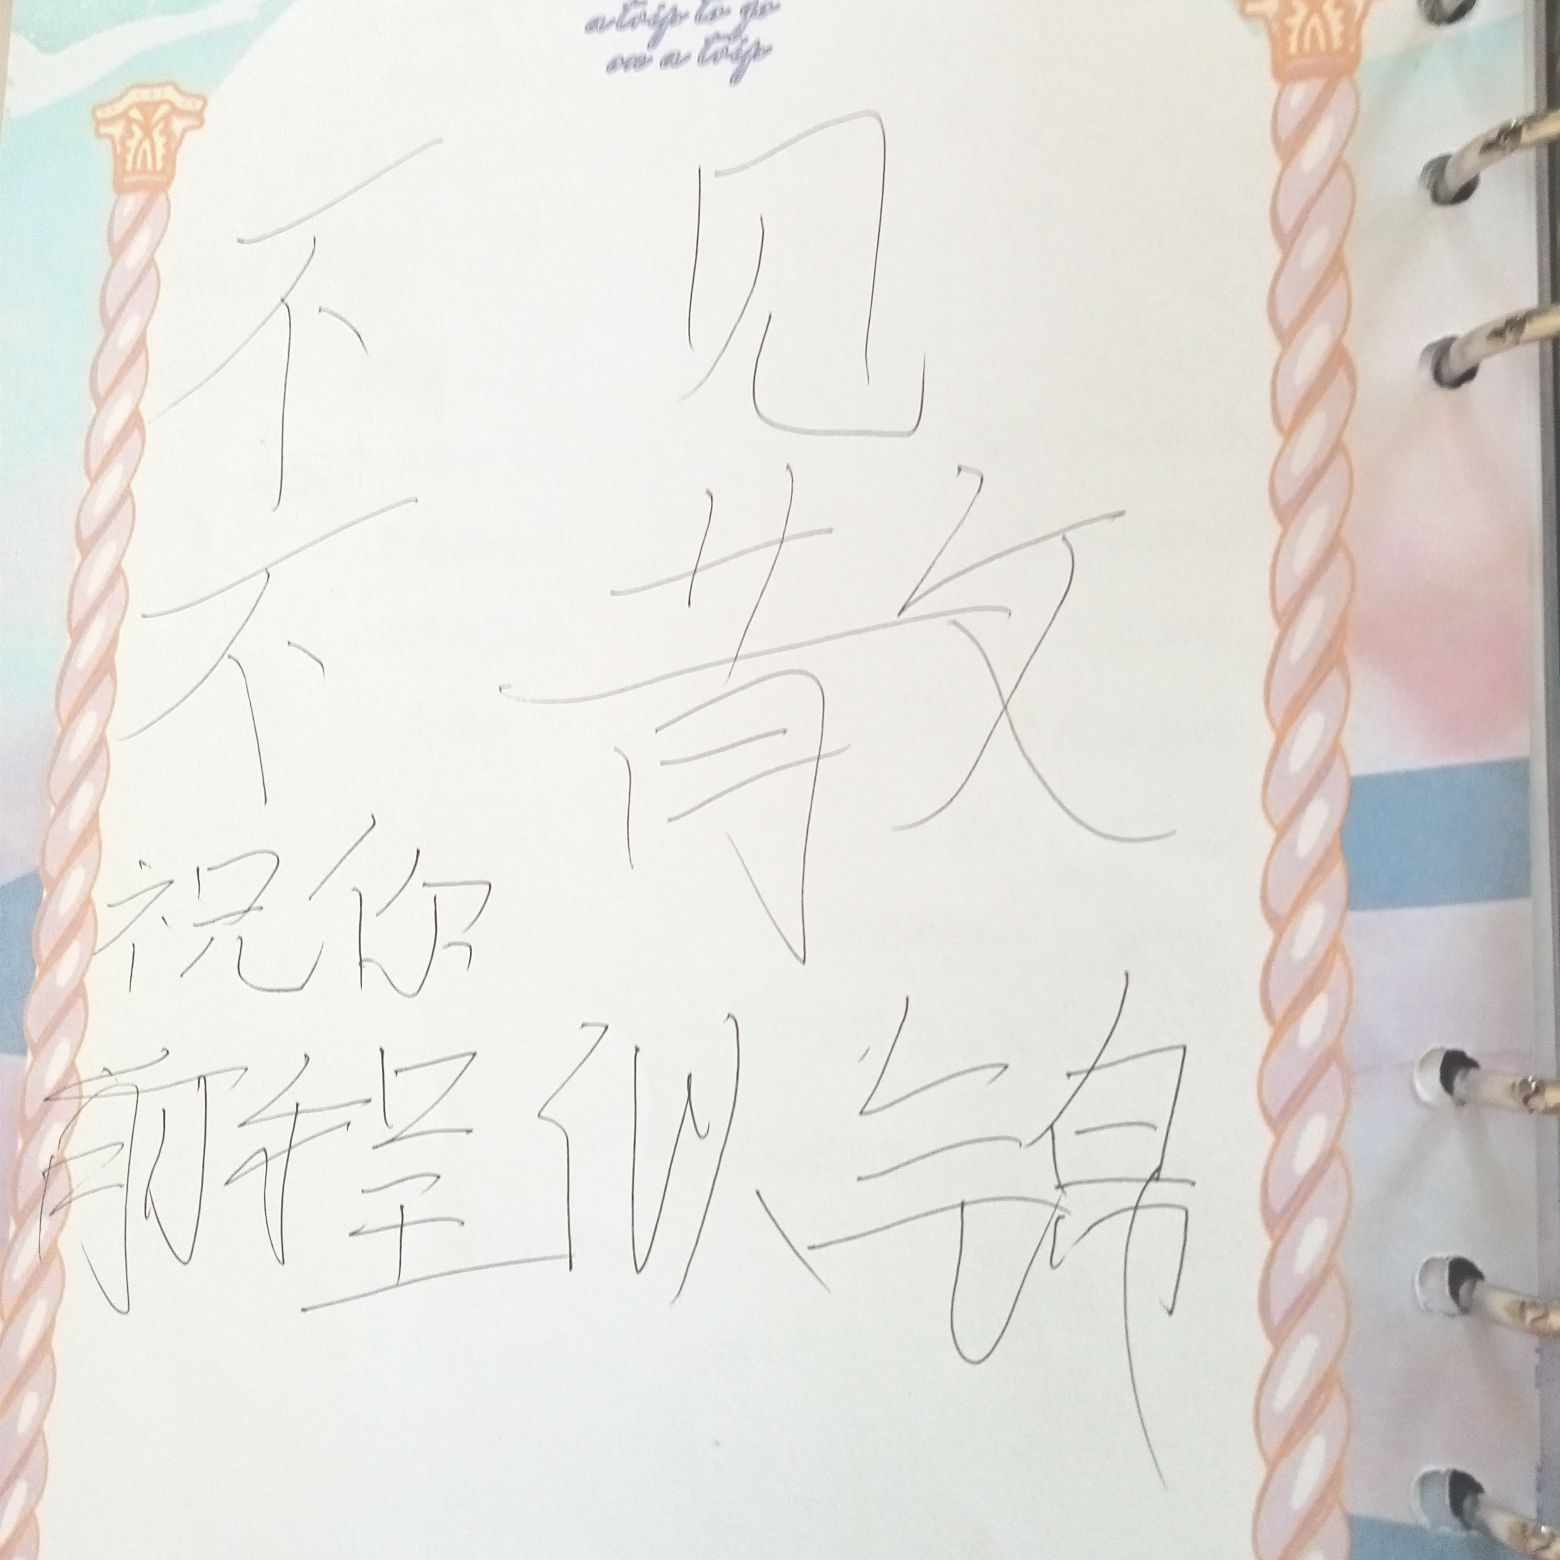 a trip to go
on a trip
不见
不散
祝你
前程似锦